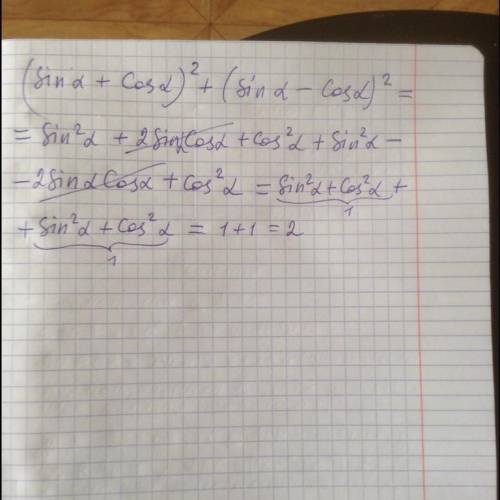 (Sin α + Cos α)² + (Sin α − Cos α)² =
= Sin²α + 2Sin α Cos α + Cos²α + Sin²α −
− 2Sin α Cos α + Cos²α = Sin²α + Cos²α +
1
+ Sin²α + Cos²α = 1 + 1 = 2
1